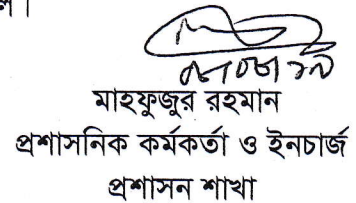 ল।
মাহফুজুর রহমান
প্রশাসনিক কর্মকর্তা ও ইনচার্জ
প্রশাসন শাখা